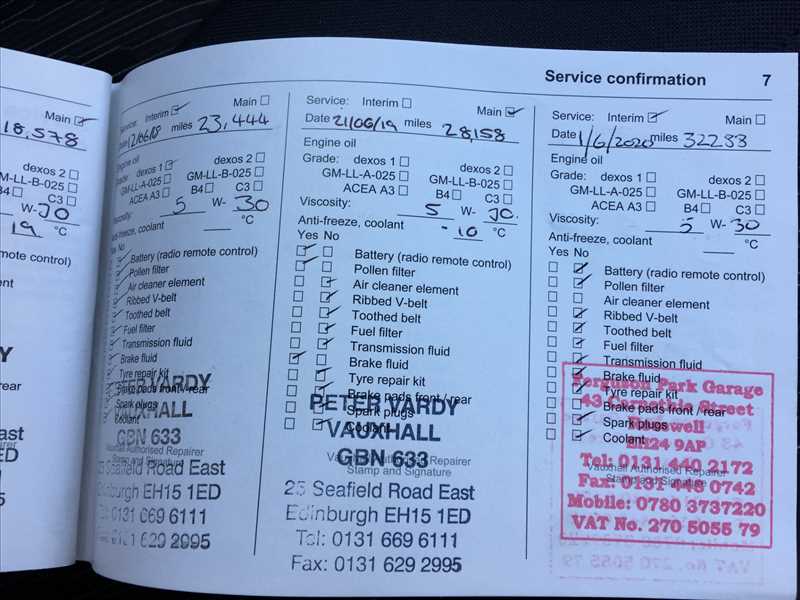 Service confirmation 7
Main
18,578
dexos 2
GM-LL-B-025
B4 C3
W-30
19 °C
remote control)
ement
rear
Service: Interim Main
Date 12/06/18 miles 23,444
Engine oil
Grade: dexos 1 dexos 2
GM-LL-A-025 GM-LL-B-025
ACEA A3 B4 C3
Viscosity: 5 W- 30
Anti-freeze, coolant °C
Yes No
Battery (radio remote control)
Pollen filter
Air cleaner element
Ribbed V-belt
Toothed belt
Fuel filter
Transmission fluid
Brake fluid
Tyre repair kit
Brake pads front / rear
Spark plugs
Coolant
PETER VARDY
VAUXHALL
GBN 633
Vauxhall Authorised Repairer
Stamp and Signature
25 Seafield Road East
Edinburgh EH15 1ED
Tel: 0131 669 6111
Fax: 0131 629 2995
Service: Interim Main
Date 21/06/19 miles 28,158
Engine oil
Grade: dexos 1 dexos 2
GM-LL-A-025 GM-LL-B-025
ACEA A3 B4 C3
Viscosity: 5 W- 30.
Anti-freeze, coolant -10 °C
Yes No
Battery (radio remote control)
Pollen filter
Air cleaner element
Ribbed V-belt
Toothed belt
Fuel filter
Transmission fluid
Brake fluid
Tyre repair kit
Brake pads front / rear
Spark plugs
Coolant
PETER VARDY
VAUXHALL
GBN 633
Vauxhall Authorised Repairer
Stamp and Signature
25 Seafield Road East
Edinburgh EH15 1ED
Tel: 0131 669 6111
Fax: 0131 629 2995
Service: Interim Main
Date 1/6/2020 miles 32233
Engine oil
Grade: dexos 1 dexos 2
GM-LL-A-025 GM-LL-B-025
ACEA A3 B4 C3
Viscosity: 5 W- 30
Anti-freeze, coolant °C
Yes No
Battery (radio remote control)
Pollen filter
Air cleaner element
Ribbed V-belt
Toothed belt
Fuel filter
Transmission fluid
Brake fluid
Tyre repair kit
Brake pads front / rear
Spark plugs
Coolant
Ferguson Park Garage
43 Carnethie Street
Rosewell
EH24 9AP
Tel: 0131 440 2172
Vauxhall Authorised Repairer
Stamp and Signature
Fax: 0131 448 0742
Mobile: 0780 3737220
VAT No. 270 5055 79